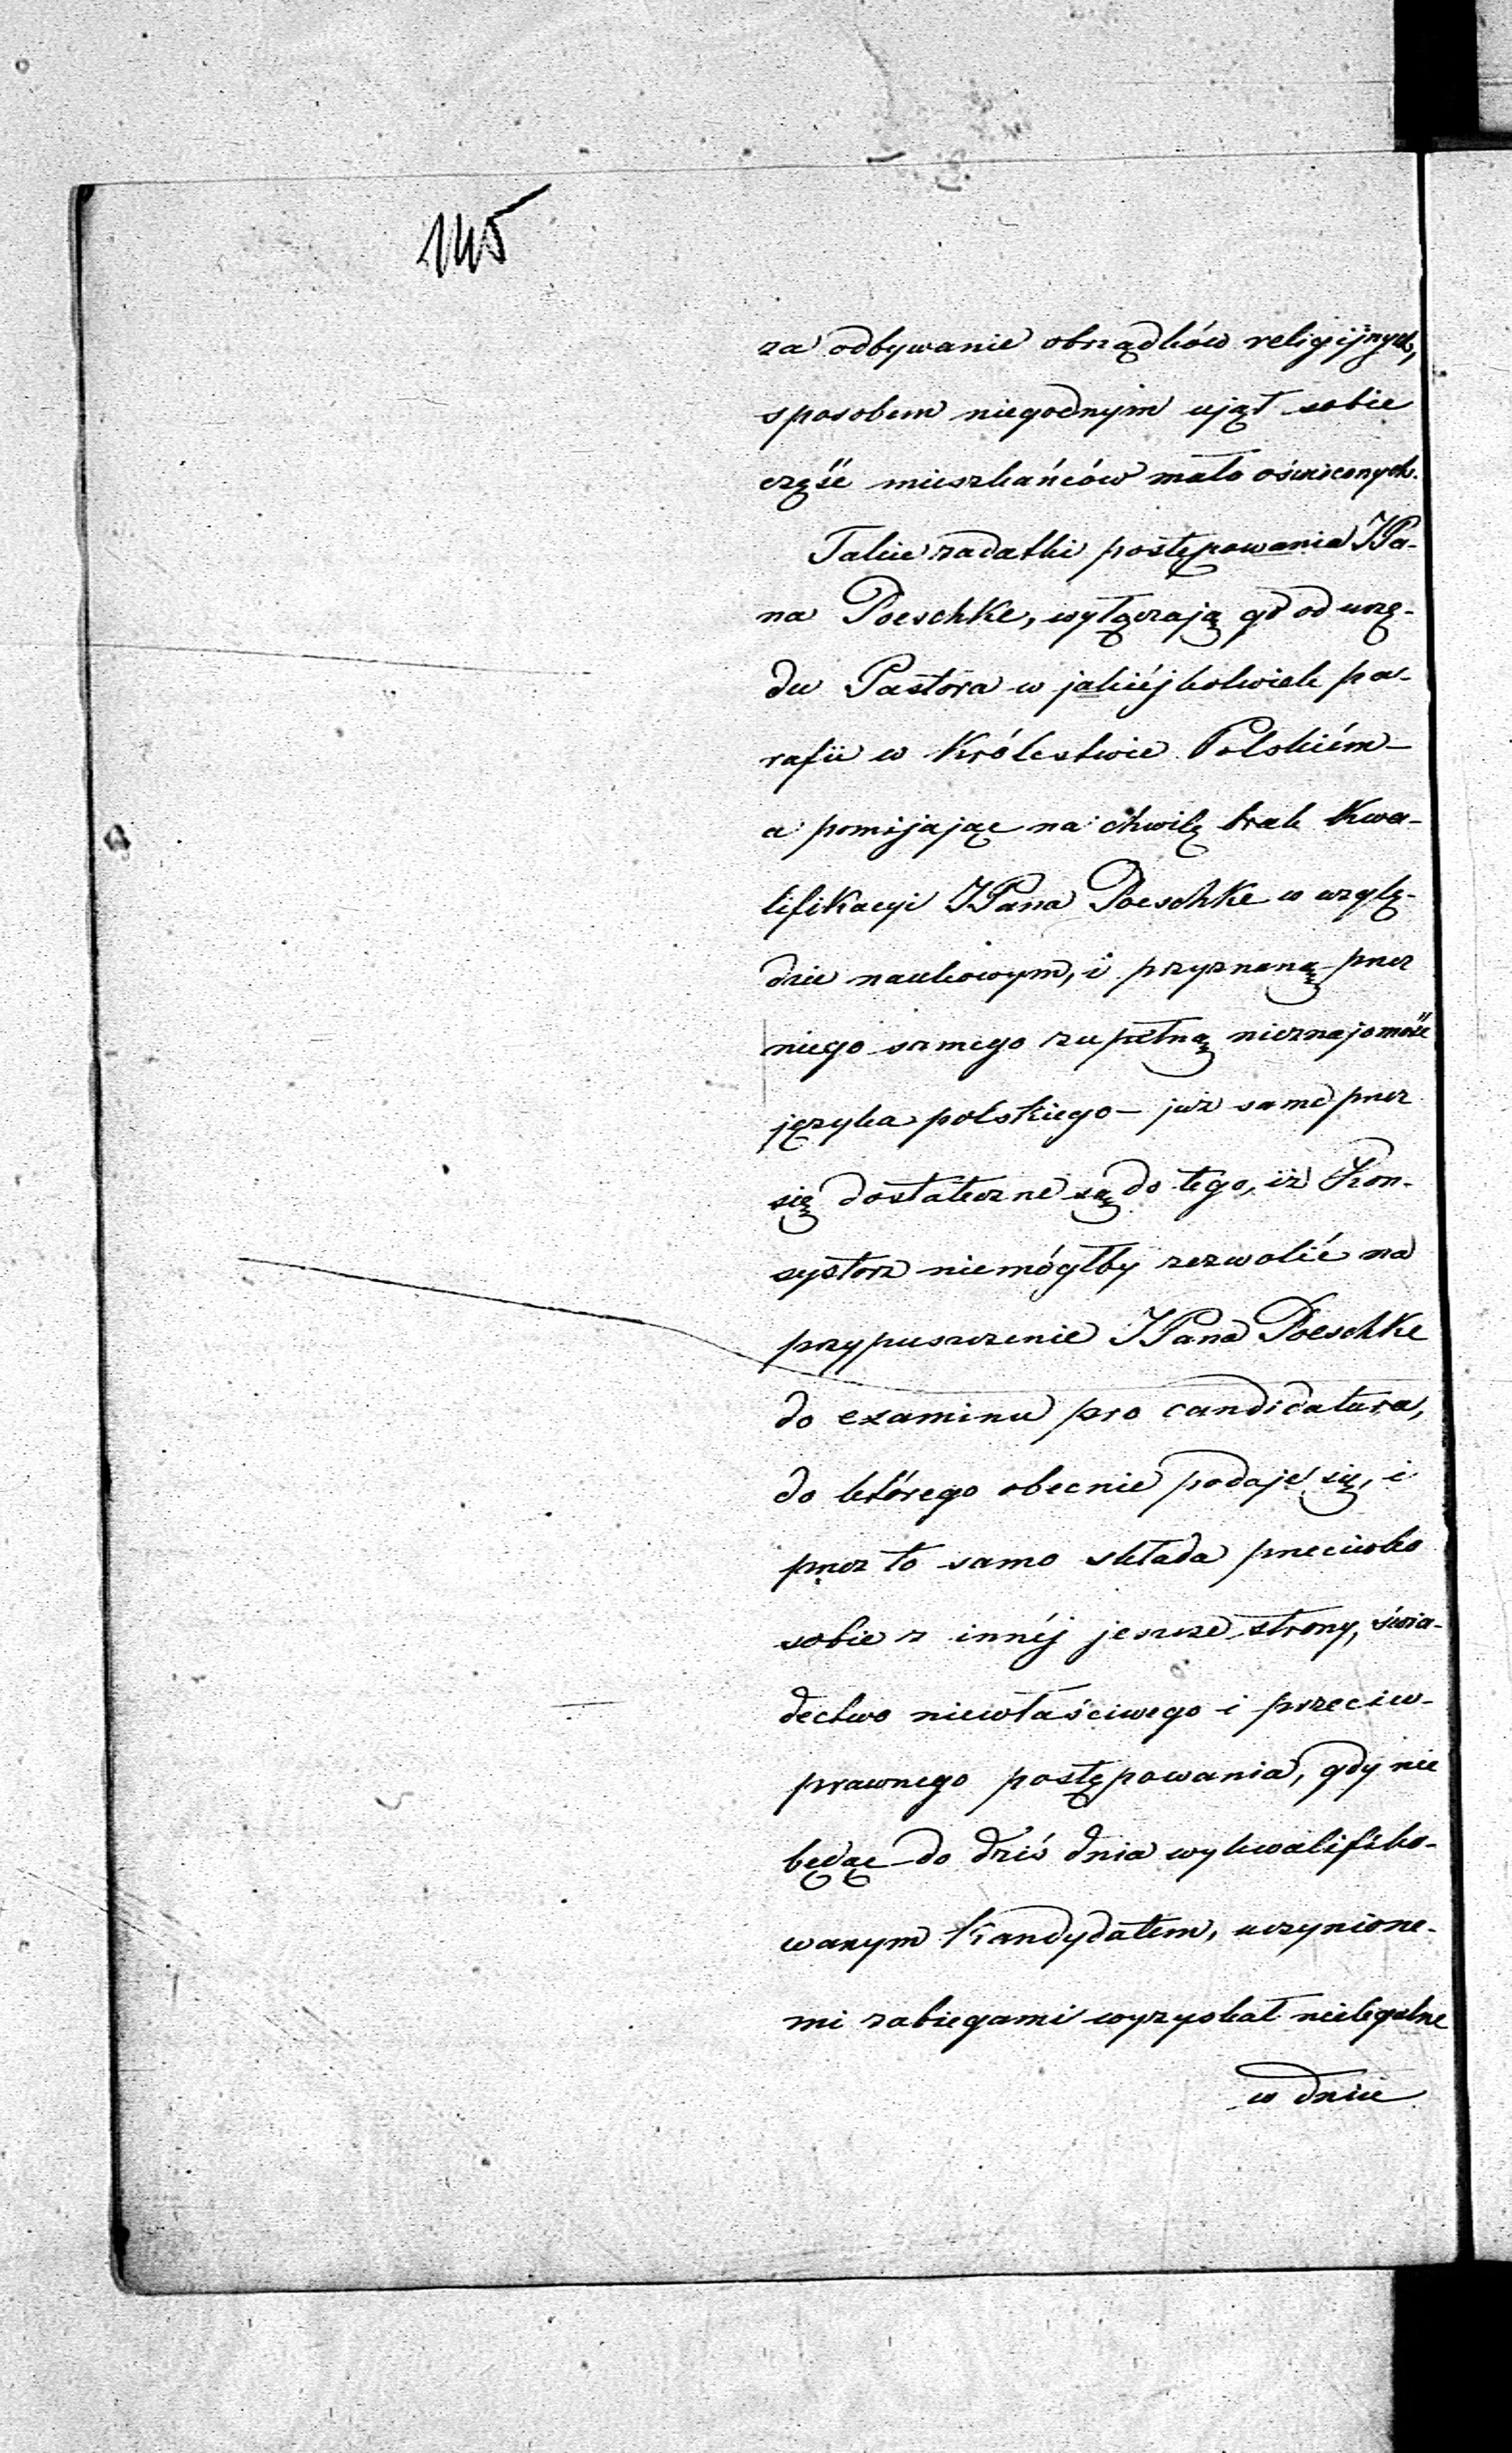 145
za odbywanie obrządków religijnych,
sposobem niegodnym ujął sobie
część mieszkańców mało oświeconych.
Takie zadatki postępowania JPa-
na Poeschke, wyłączają go od urzę-
du Pastora w jakiéjkolwiek pa-
rafii w Królestwie Polskiém –
a pomijając na chwilę brak kwa-
lifikacyi JPana Poeschke w wzglę-
dzie naukowym, i przyznaną przez
niego samego zupełną nieznajomość
języka polskiego – już same przez
się dostateczne są do tego, iż Kon-
systorz niemógłby zezwolić na
przypuszczenie JPana Poeschke
do examinu pro candidatura,
do którego obecnie podaje się, i
przez to samo składa przeciwko
sobie z innéj jeszcze strony, świa-
dectwo niewłaściwego i przeciw-
prawnego postępowania, gdy nie
będąc do dziś dnia wykwalifiko-
wanym Kandydatem, uczynione-
mi zabiegami wyzyskał nielegalne
w dniu